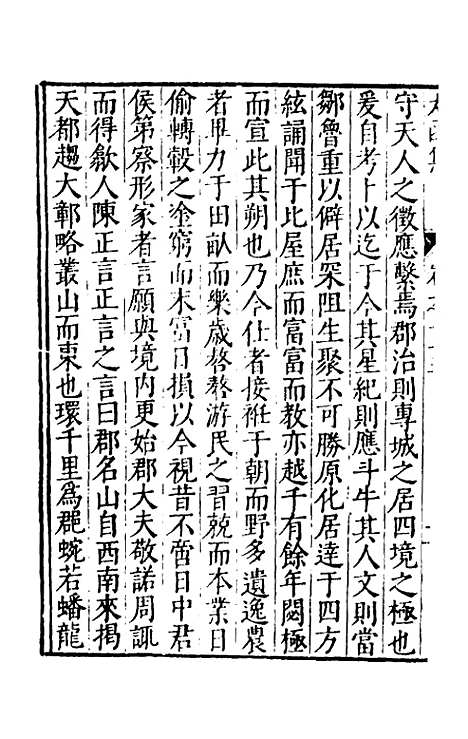 守天人之徵應繫焉郡治則專城之居四境之極也
爰自考卜以迄于今其星紀則應斗牛其人文則當
鄒魯重以僻居罙阻生聚不可勝原化居達于四方
絃誦聞于比屋庶而富富而教亦越千有餘年閎極
而宣此其朔也乃今仕者接袵于朝而野多遺逸農
者畢力于田畝而樂歲咨嗸游民之習兢而本業日
偷轉轂之塗窮而末富日損以今視昔不啻日中君
侯第察形家者言願與境内更始郡大夫敬諾周諏
而得歙人陳正言正言之言曰郡名山自西南來揭
天都趨大鄣略叢山而東也環千里爲郡蜿若蟠龍